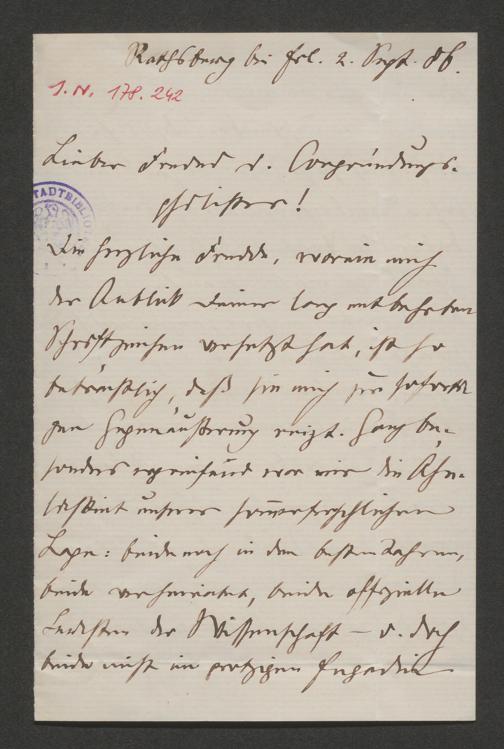 Rathsberg bei Erl. 2. Sept. 86.
J. N. 178.242
Lieber Freund u. Vorgründungs-
philister!
STADTBIBLIO
Die herzliche Freude, worein mich
der Anblick Deiner lang entbehrten
Schriftzeichen versetzt hat, ist so
beträchtlich, daß sie mich zur soforti
gen Gegenäußerung reizt. Ganz be-
sonders ergreifend war mir die Ähn-
lichkeit unserer sommerfrischlichen
Lage: beide noch in den besten Jahren,
beide verheiratet, beide offizielle
Leuchten der Wissenschaft – u. doch
beide nicht im protzigen Engadin